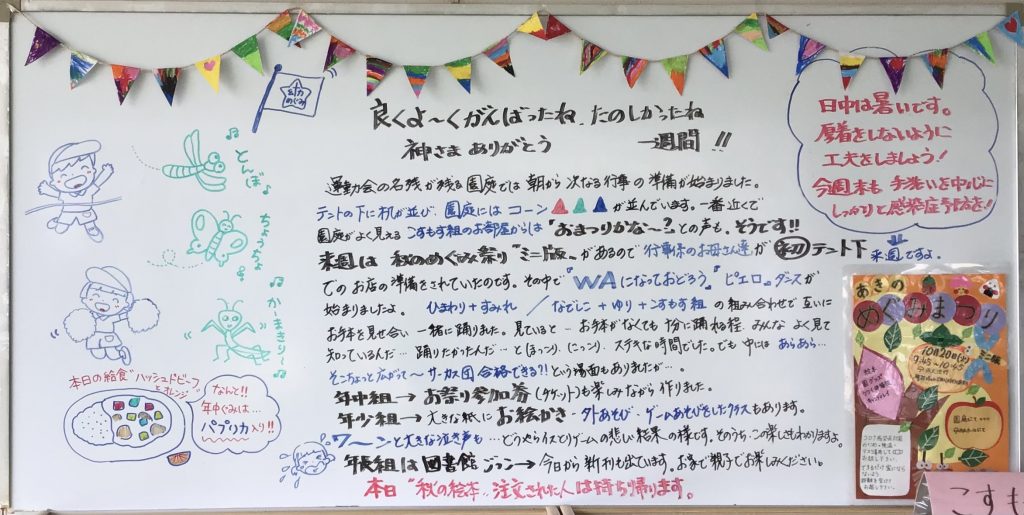 良くよ～くがんばったね、たのしかったね
神さま ありがとう 一週間!!
運動会の名残が残る園庭では 朝から 次なる行事の 準備が始まりました。
テントの下に机が並び、園庭には コーン が並んでいます。一番近くで
園庭がよく見える こすもす組のお部屋からは "おまつりかな～?" との声も。そうです!!
来週は 秋のめぐみ祭り "ミニ版" があるので 行事係のお母さん達が 初 テント下
でのお店の準備をされていたのです。その中で『WAになっておどろう』『ピエロ』ダンスが
始まりましたよ。 ひまわり+すみれ / なでしこ+ゆり+こすもす組 の組み合わせで 互いに
お手本を見せ合い 一緒に踊りました。見ていると… お手本がなくても 十分に踊れる程、みんな よく見て
知っているんだ… 踊りたかったんだ… と ほっこり、にっこり、ステキな時間でした。でも 中には あらあら…
そこちょっと広がって～ サーカス団 合格できる?! という場面もありましたが…。
年中組→お祭り参加券(チケット)も楽しみながら 作りました。
年少組→大きな紙にお絵かき・外あそび、ゲームあそびをしたクラスもあります。
ワ～ンと大きな泣き声も…どうやらイスとりゲームの悲しい結果の様です。そのうち、この楽しさもわかりますよ。
年長組は図書館ごっこ→今日から新刊も出ています。お家で親子でお楽しみください。
本日 "秋の絵本" 注文された人は持ち帰ります。
めぐみ
とんぼ
ちょうちょ
かーまきりー
本日の給食 "ハッシュドビーフ"
と オレンジ
なんと!!
年中ぐみは…
パプリカ入り!!
日中は暑いです。
厚着をしないように
工夫をしましょう!
今週末も 手洗いを中心に
しっかりと感染症予防を!
来週ですよ。
あきの
めぐみまつり
ミニ版
10月20日(火)
9:45~10:45
園庭にて
こすも